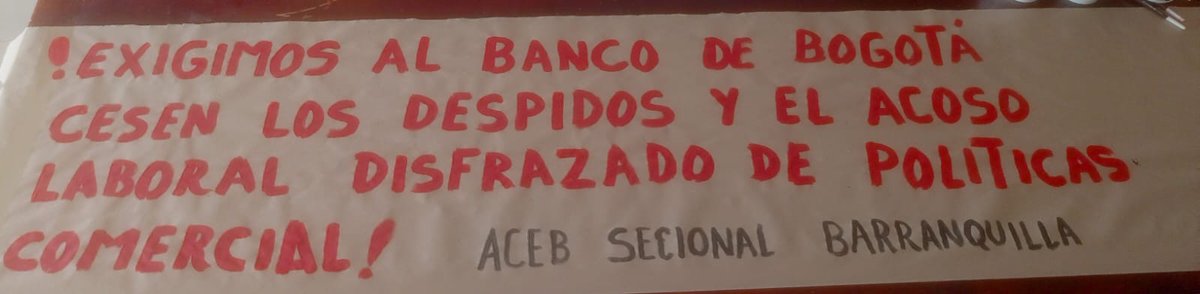 !EXIGIMOS AL BANCO DE BOGOTÁ
CESEN LOS DESPIDOS Y EL ACOSO
LABORAL DISFRAZADO DE POLITICAS
COMERCIAL! ACEB SECIONAL BARRANQUILLA